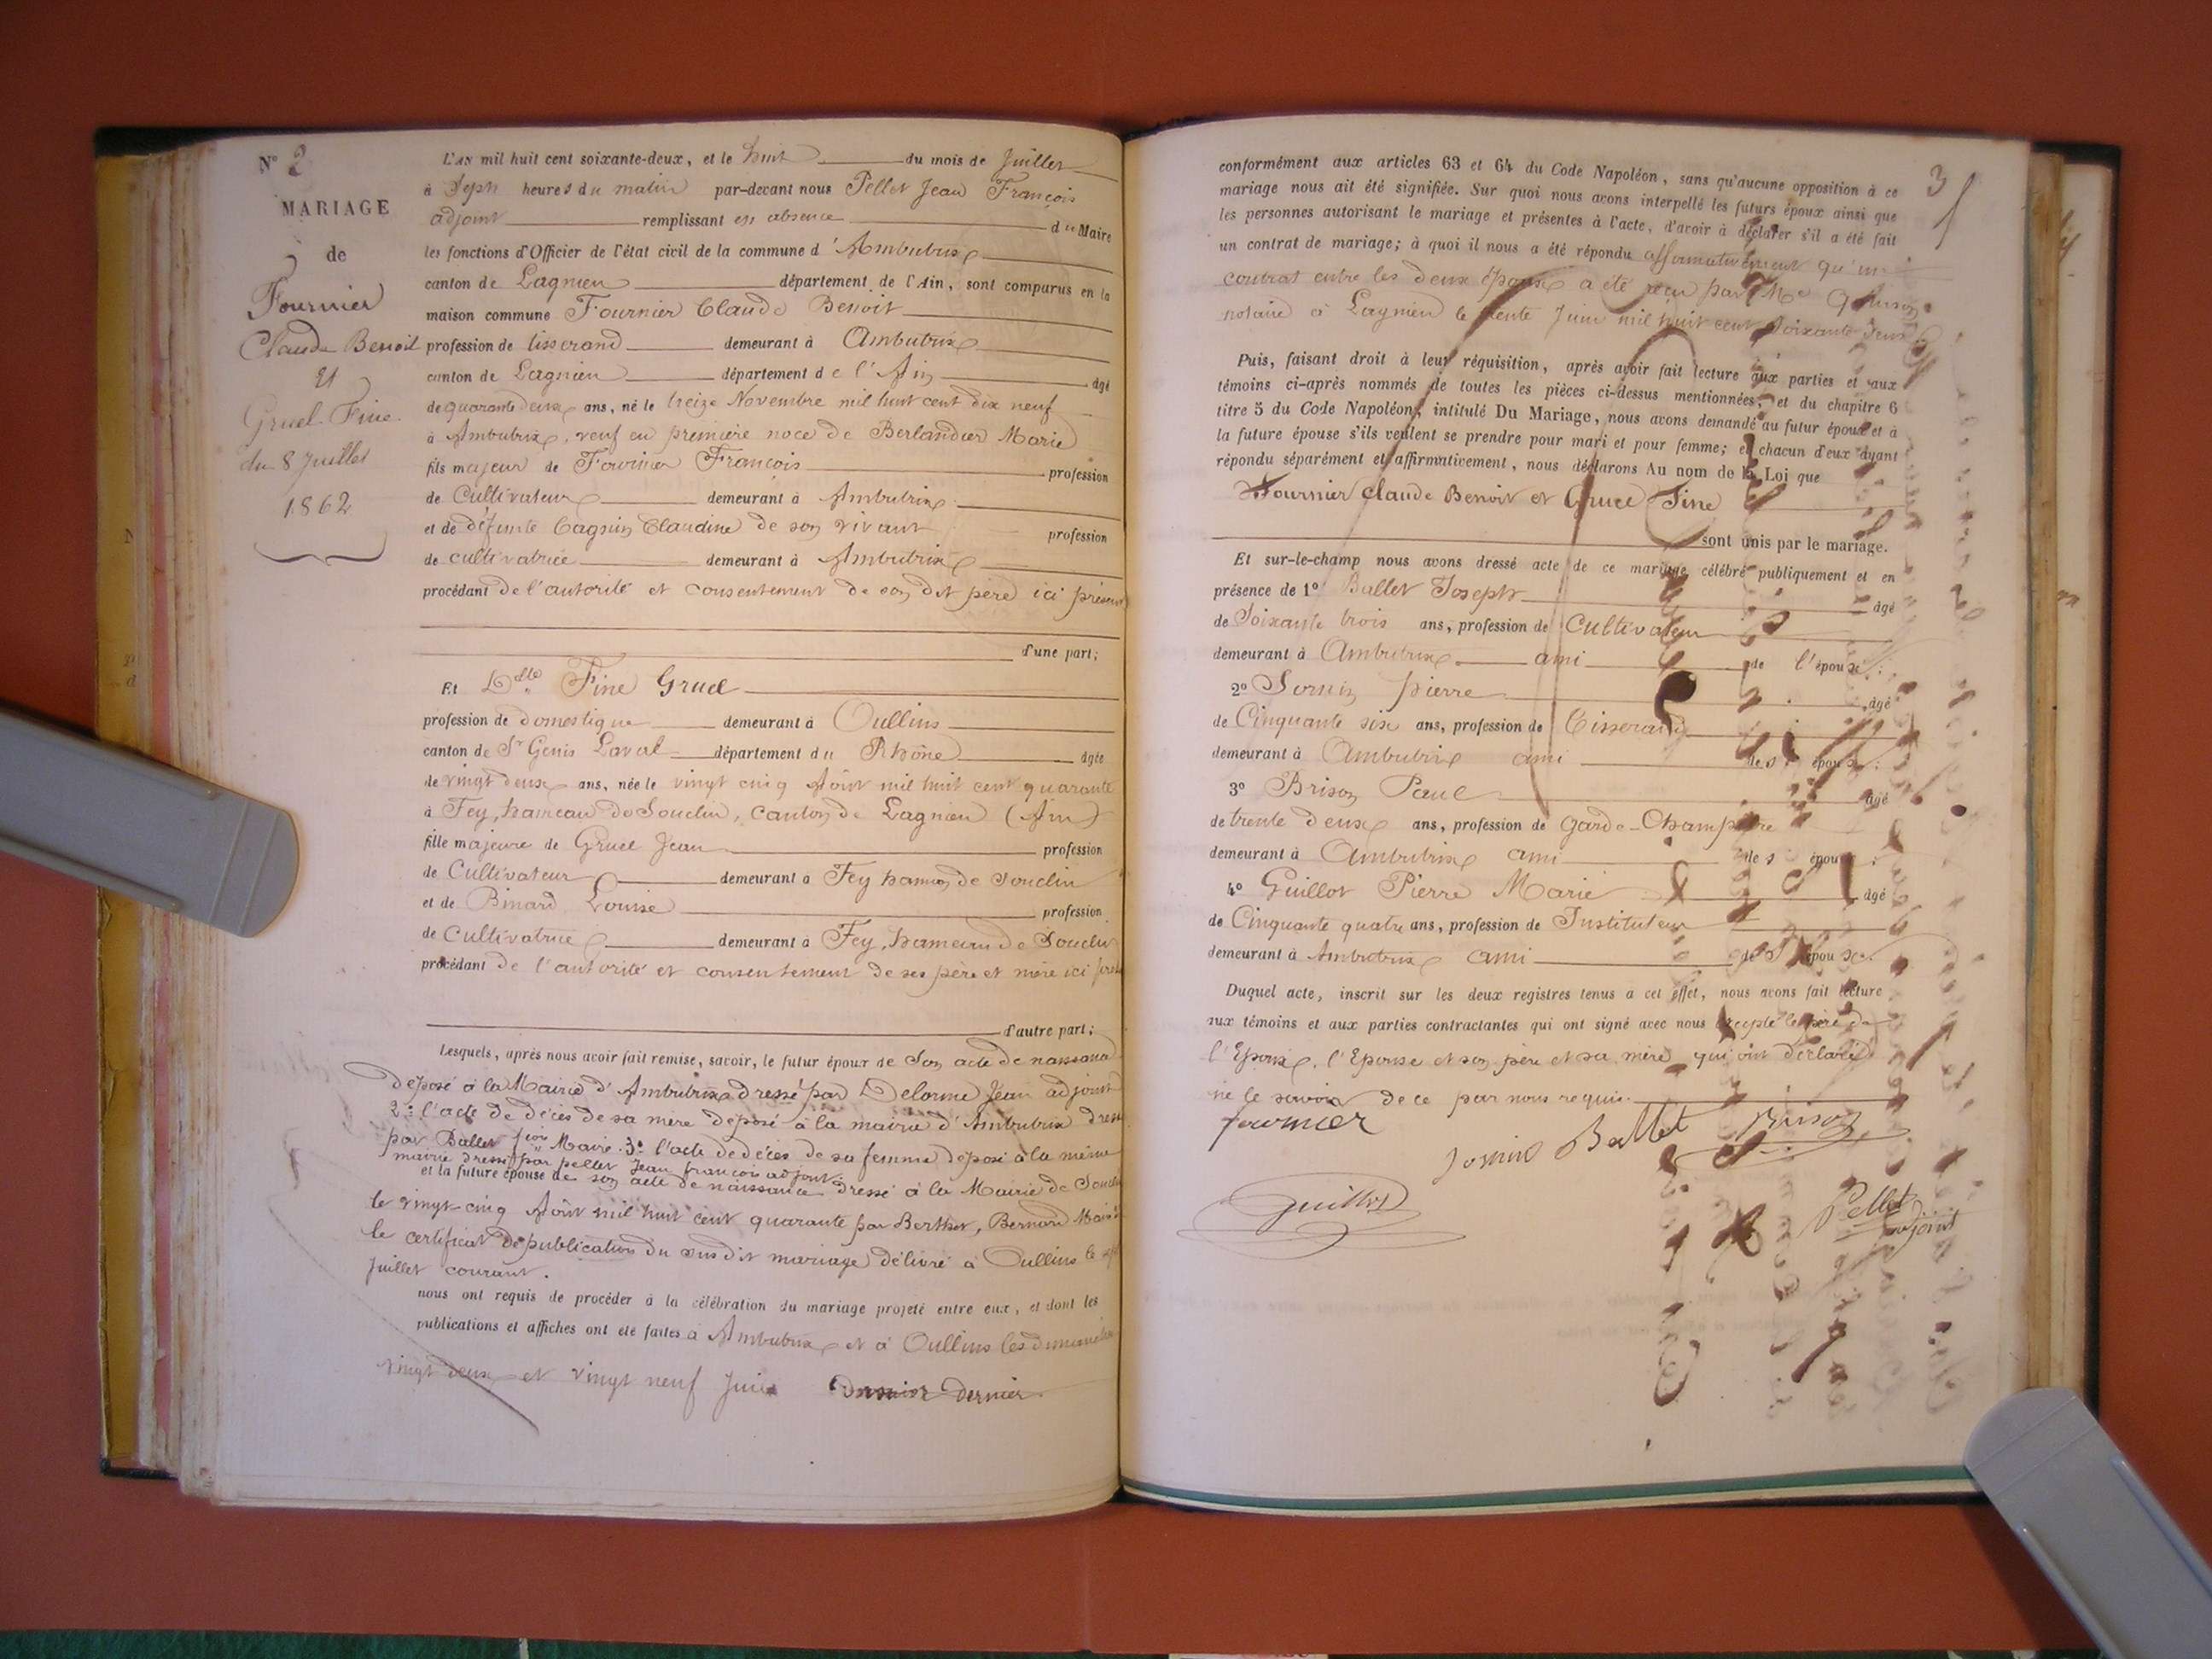 N° 2
MARIAGE
de
Fournier
Claude Benoit
Et
Gruel Fine
du 8 Juillet
1862
L'AN mil huit cent soixante-deux, et le huit du mois de Juillet
à Sept heures du matin par-devant nous Pellet Jean François
adjoint remplissant en absence du Maire
les fonctions d'Officier de l'état civil de la commune d'Ambutrix
canton de Lagnieu département de l'Ain, sont comparus en la
maison commune Fournier Claude Benoit
profession de tisserand demeurant à Ambutrix
canton de Lagnieu département de l'Ain âgé
de quarante deux ans, né le treize Novembre mil huit cent dix neuf
à Ambutrix, veuf en première noce de Berlandier Marie
fils majeur de Fournier François profession
de Cultivateur demeurant à Ambutrix
et de défunte Cagnin Claudine de son vivant profession
de cultivatrice demeurant à Ambutrix
procédant de l'autorité et consentement de son dit père ici présent
d'une part;
Et Dlle Fine Gruel
profession de domestique demeurant à Oullins
canton de St Genis Laval département du Rhône âgée
de vingt deux ans, née le vingt cinq Août mil huit cent quarante
à Fey, hameau de Souclin, canton de Lagnieu (Ain)
fille majeure de Gruel Jean profession
de Cultivateur demeurant à Fey hameau de Souclin
et de Binard Louise profession
de Cultivatrice demeurant à Fey, hameau de Souclin
procédant de l'autorité et consentement de ses père et mère ici
d'autre part;
Lesquels, après nous avoir fait remise, savoir, le futur époux de Son acte de naissance
déposé à la Mairie d'Ambutrix dressé par Delorme Jean adjoint
2° l'acte de décès de sa mère déposé à la mairie d'Ambutrix dressé
par Ballet Maire. 3° l'acte de décès de sa femme déposé à la même
mairie dressé par pellet Jean françois adjoint
et la future épouse de son acte de naissance dressé à la Mairie de Souclin
le vingt-cinq Août mil huit cent quarante par Berthet, Bernard Maire
le certificat de publication du susdit mariage délivré à Oullins le
Juillet courant.
nous ont requis de procéder à la célébration du mariage projeté entre eux, et dont les
publications et affiches ont été faites à Ambutrix et à Oullins les dimanches
vingt deux et vingt neuf Juin dernier
3
conformément aux articles 63 et 64 du Code Napoléon, sans qu'aucune opposition à ce
mariage nous ait été signifiée. Sur quoi nous avons interpellé les futurs époux ainsi que
les personnes autorisant le mariage et présentes à l'acte, d'avoir à déclarer s'il a été fait
un contrat de mariage; à quoi il nous a été répondu affirmativement qu'un
contrat entre les deux époux a été reçu par Me
notaire à Lagnieu le trente Juin mil huit cent soixante deux
Puis, faisant droit à leur réquisition, après avoir fait lecture aux parties et aux
témoins ci-après nommés de toutes les pièces ci-dessus mentionnées, et du chapitre 6
titre 5 du Code Napoléon, intitulé Du Mariage, nous avons demandé au futur époux et à
la future épouse s'ils veulent se prendre pour mari et pour femme; et chacun d'eux ayant
répondu séparément et affirmativement, nous déclarons Au nom de la Loi que
Fournier Claude Benoit et Gruel Fine
sont unis par le mariage.
Et sur-le-champ nous avons dressé acte de ce mariage célébré publiquement et en
présence de 1° Ballet Joseph âgé
de Soixante trois ans, profession de Cultivateur
demeurant à Ambutrix ami de l'époux;
2° Sornin pierre âgé
de Cinquante six ans, profession de Tisserand
demeurant à Ambutrix ami des époux;
3° Brison Paul âgé
de trente deux ans, profession de garde-Champêtre
demeurant à Ambutrix ami des époux;
4° Guillot Pierre Marie âgé
de Cinquante quatre ans, profession de Instituteur
demeurant à Ambutrix ami des époux.
Duquel acte, inscrit sur les deux registres tenus à cet effet, nous avons fait lecture
aux témoins et aux parties contractantes qui ont signé avec nous excepté le père de
l'Epoux, l'Epouse et son père et sa mère qui ont déclaré
ne le savoir de ce par nous requis.
fournier
sornin Ballet Brison
Guillot
Pellet
adjoint